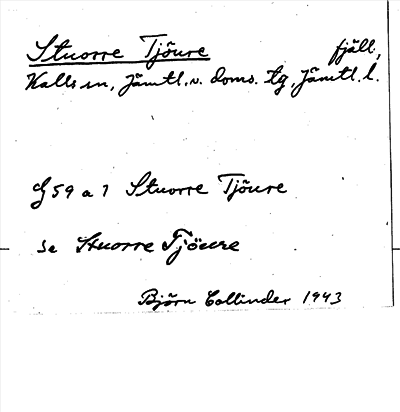 Stuorre Tjōure fjäll,
Kalls sn, Jämtl. v. doms. tg, Jämtl. l.
G 59 a 7 Stuorre Tjōure
Se Stuorre Tjōure
Björn Collinder 1943